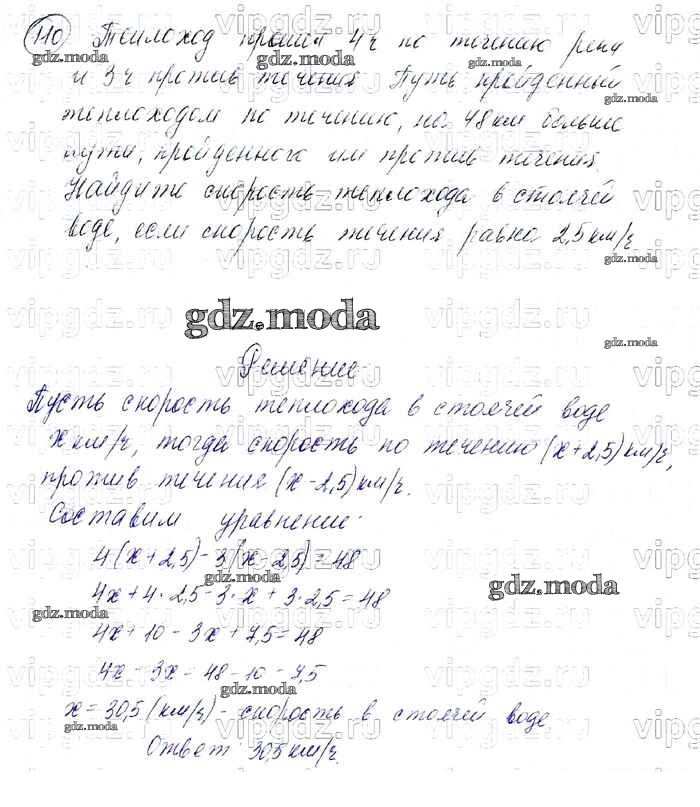 110 Теплоход прошел 4ч по течению реки
и 3ч против течения. Путь, пройденный
теплоходом по течению, на 48 км больше
пути, пройденного им против течения.
Найдите скорость теплохода в стоячей
воде, если скорость течения равна 2,5 км/ч
gdz.moda
Решение
Пусть скорость теплохода в стоячей воде
x км/ч, тогда скорость по течению (x+2,5) км/ч,
против течения (x-2,5) км/ч.
Составим уравнение:
4(x+2,5)-3(x-2,5)=48
gdz.moda
4x+4·2,5-3·x+3·2,5=48
4x+10-3x+7,5=48
4x-3x=48-10-7,5
x=30,5 (км/ч) - скорость в стоячей воде
Ответ: 30,5 км/ч.